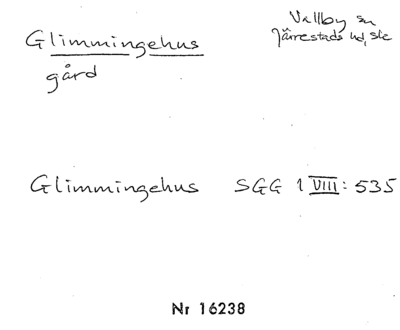 Glimmingehus
gård
Vallby sn
Järrestads hd, Sk
Glimmingehus SGG 1 VIII: 535
Nr 16238